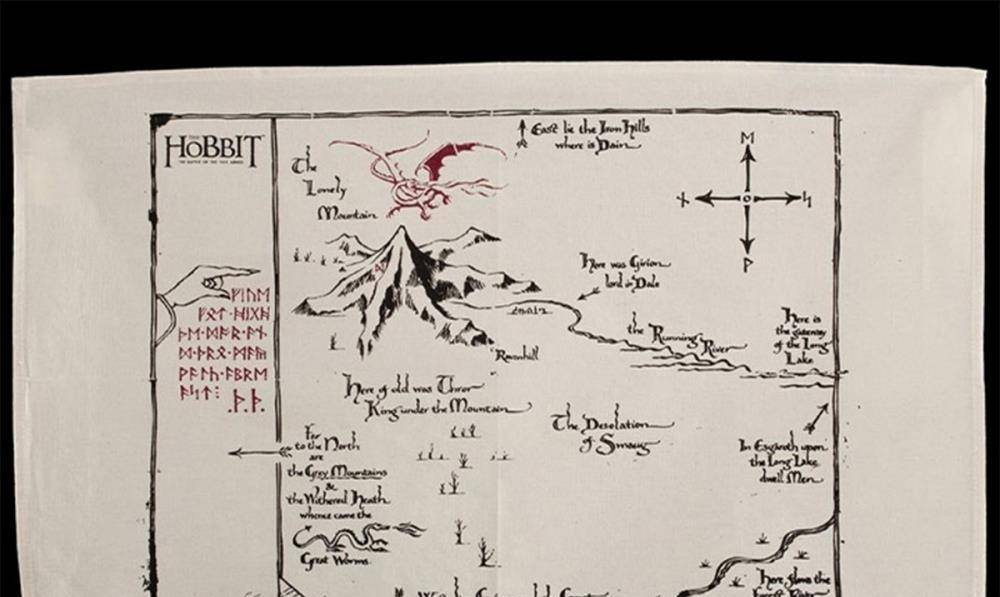 THE HOBBIT
THE BATTLE OF THE FIVE ARMIES
East lie the Iron Hills
where is Dain
The
Lonely
Mountain
ᛖ
ᚾ
ᛋ
ᚹ
Here was Girion
lord in Dale
ᚠᛁᚢᛖ
ᚠᛟᛏ·ᚻᛁᚷᚻ
ᚦᛖ·ᛞᛳᚱ·ᚪᚾ
ᛞ·ᚦᚱᛟ·ᛗᚪᚣ
ᚹᚪᛚᚳ·ᚪᛒᚱᛖ
ᚪᛋᛏ⁝ ·ᚦ·ᚦ·
the Running
River
Here is
the gateway
of the Long
Lake
Ravenhill
Here of old was Thror
King under the Mountain
The Desolation
of Smaug
Far
to the North
are
the Grey Mountains
&
the Withered Heath
whence came the
Great Worms.
In Esgaroth upon
the Long Lake
dwell Men
Here flows the
Forest River